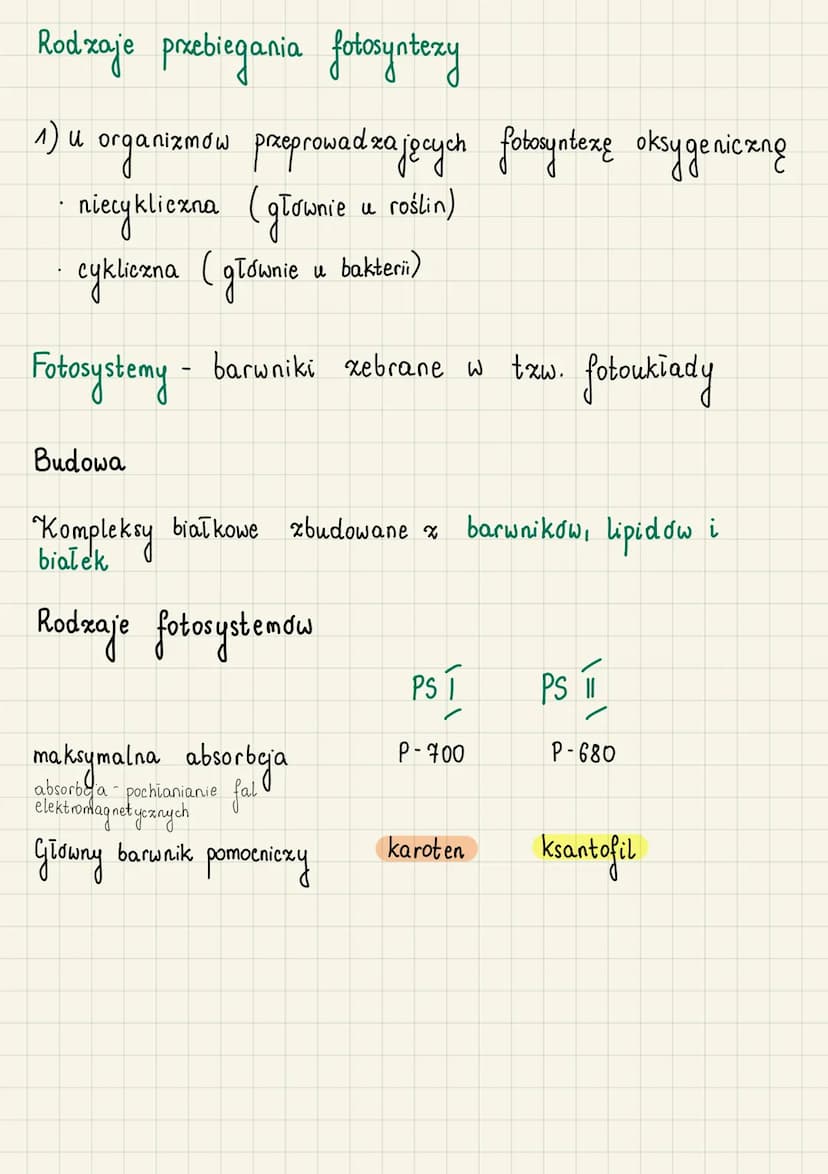 Rodzaje przebiegania fotosyntezy
1) u organizmów przeprowadzających fotosyntezę oksygeniczną
· niecykliczna (głównie u roślin)
· cykliczna (głównie u bakterii)
Fotosystemy - barwniki zebrane w tzw. fotoukłady
Budowa
Kompleksy białkowe zbudowane z barwników, lipidów i
białek
Rodzaje fotosystemów
PS I PS II
maksymalna absorbcja P-700 P-680
absorbcja - pochłanianie fal
elektromagnetycznych
Główny barwnik pomocniczy karoten ksantofil